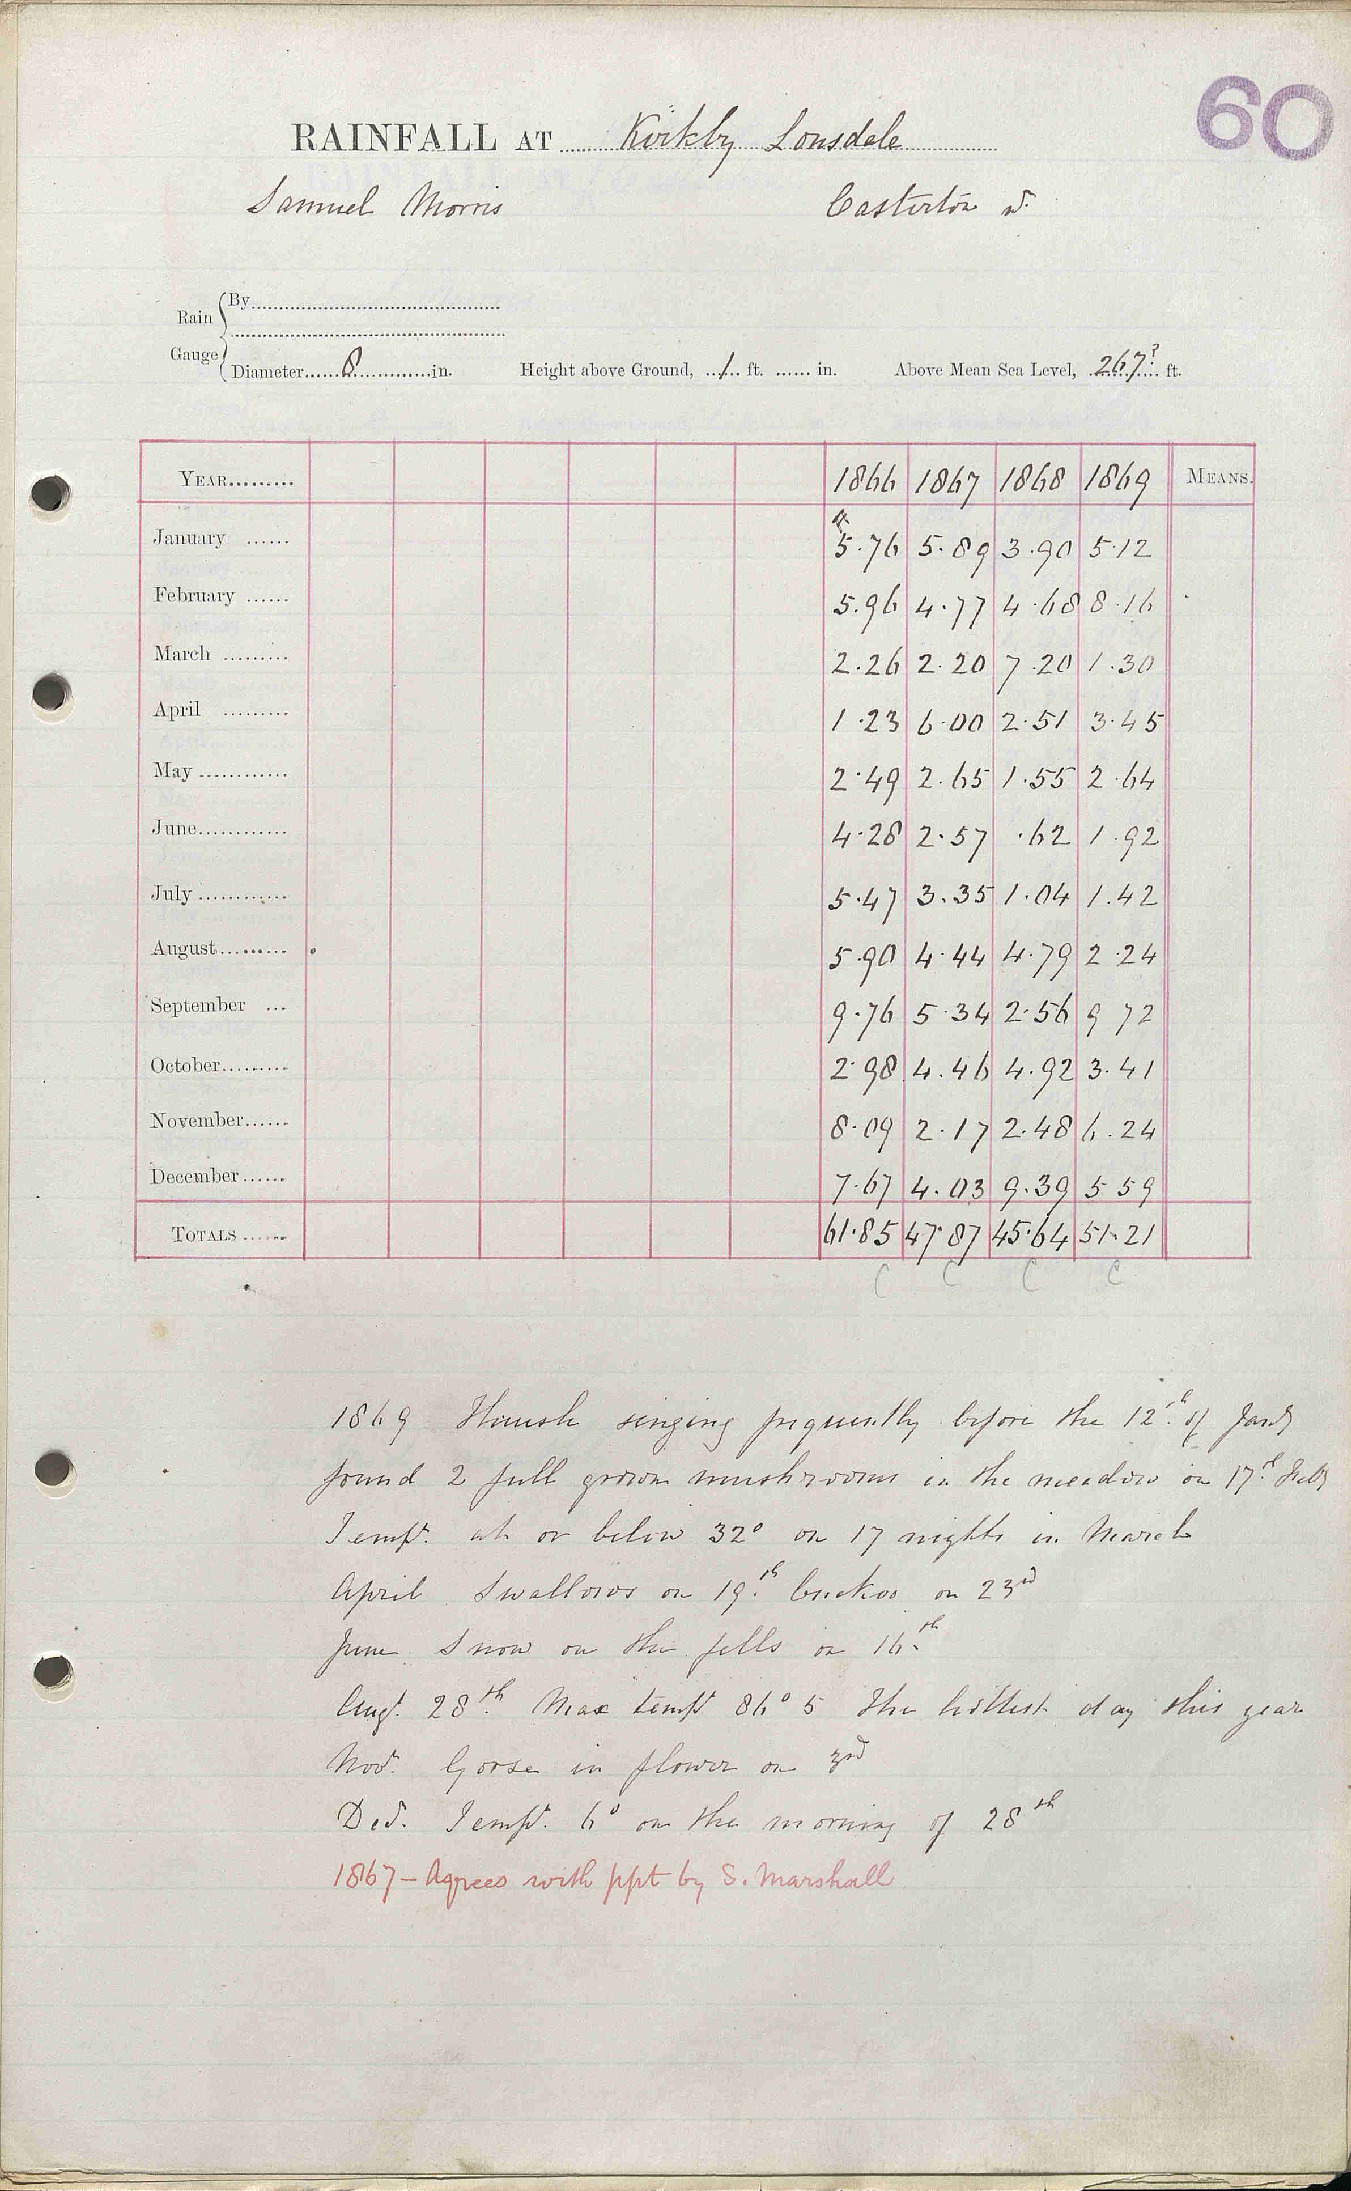 60
RAINFALL AT Kirkby Lonsdale
Samuel Morris Casterton
Rain Gauge { By
Diameter 8 in. Height above Ground, 1 ft. in. Above Mean Sea Level, 267? ft.
YEAR 1866 1867 1868 1869 MEANS.
January 5.76 5.89 3.90 5.12
February 5.96 4.77 4.68 8.16
March 2.26 2.20 7.20 1.30
April 1.23 6.00 2.51 3.45
May 2.49 2.65 1.55 2.64
June 4.28 2.57 .62 1.92
July 5.47 3.35 1.04 1.42
August 5.90 4.44 4.79 2.24
September 9.76 5.34 2.56 9 72
October 2.98 4.46 4.92 3.41
November 8.09 2.17 2.48 6.24
December 7.67 4.03 9.39 5 59
TOTALS 61.85 47.87 45.64 51.21
C C C C
1869 Thrush singing frequently before the 12th of Jany
found 2 full grown mushrooms in the meadow on 17th Feby
Tempr. at or below 32° on 17 nights in March
April Swallows on 19th Cuckoo on 23rd
June Snow on the fells on 16th
Augt. 28th Max tempr 86°5 The hottest day this year
Novr. Gorse in flower on 3rd
Decr. Tempr. 6° on the morning of 28th
1867 - Agrees with ppt by S. Marshall